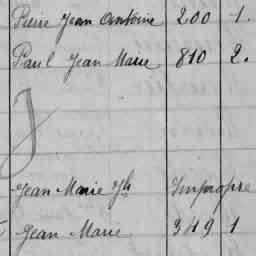 Pierre Jean Antoine 200 1.
Paul Jean Marie 810 2.
J
Jean Marie Jh Impropre
Jean Marie 349 1